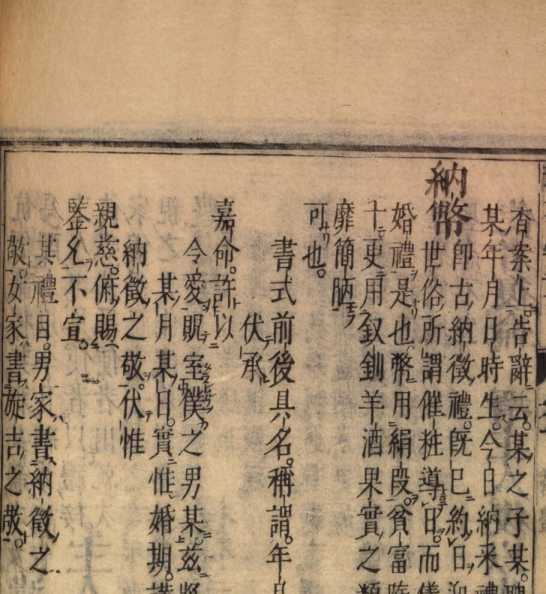 香案上。告辭云。某之子某。聘
某年月日時生。今日納采禮
納幣即古納徵禮。既已約日迎
世俗所謂催粧導日。而儀
婚禮是也。幣用絹段。貧富
十。更用釵釧羊酒果實之類
靡簡陋
可也。
書式前後具名稱謂。年月
伏承
嘉命。許以
令愛貺室僕之男某。茲將
某月某日。實惟婚期。謹
納徵之敬。伏惟
親慈。俯賜
鑒允。不宣。
其禮目。男家書納徵之
敬。女家書旋吉之敬。